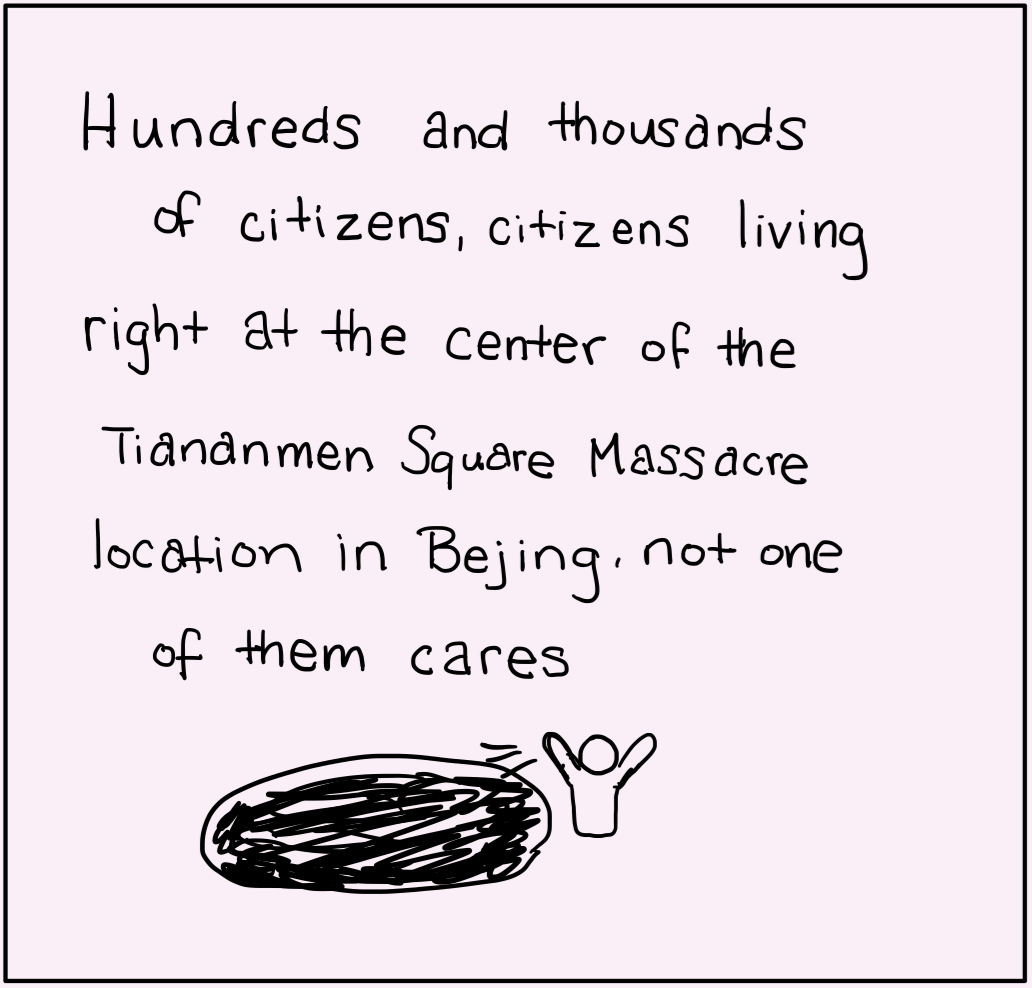 Hundreds and thousands
of citizens, citizens living
right at the center of the
Tiananmen Square Massacre
location in Bejing. not one
of them cares